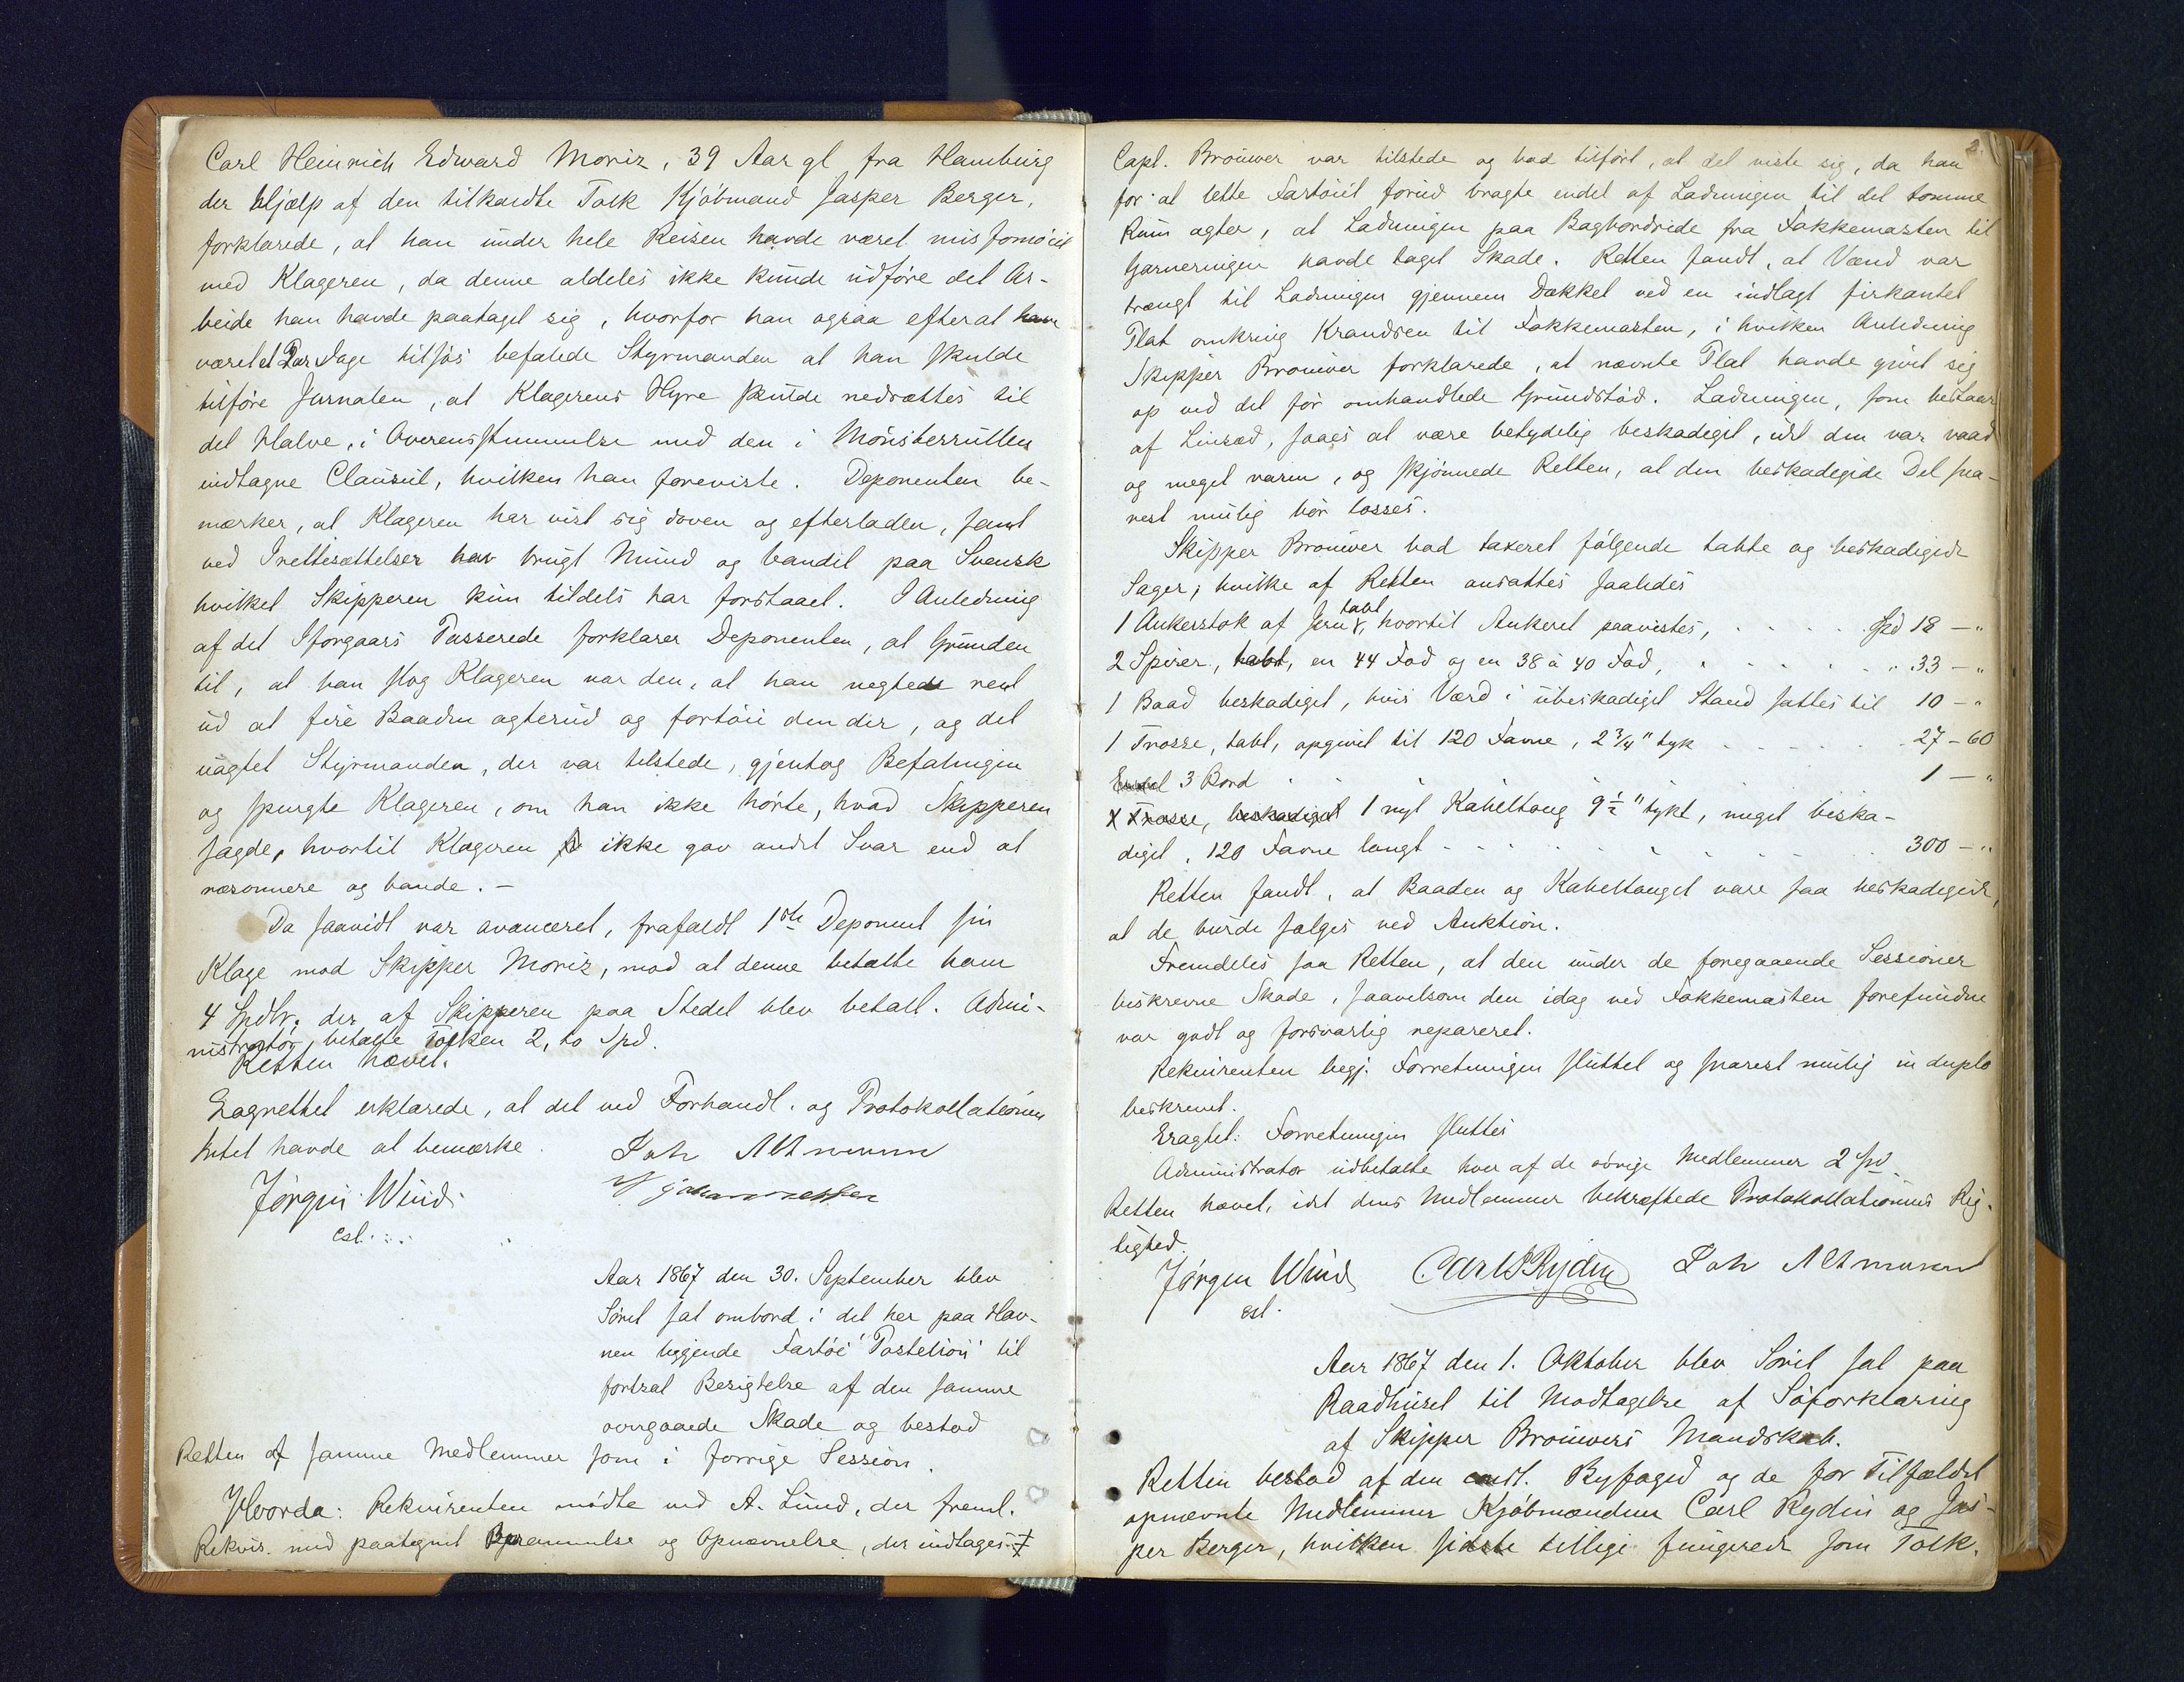 Carl Heinrich Edward Moriz, 39 Aar gl. fra Hamburg
der Hjælp af den tilkaldte Tolk Kjøbmand Jasper Berger,
forklarede, at han under hele Reisen havde været misfornøiet
med Klageren, da denne aldeles ikke kunde udføre det Ar-
beide han havde paataget sig, hvorfor han ogsaa efterat have
været et Par Dage tilsøs befalede Styrmanden at han skulde
tilføre Jurnalen, at Klagerens Hyre skulde nedsættes til
det Halve, i Overensstemmelse med den i Mønsterrullen
indtagne Clausul, hvilken han foreviste. Deponenten be-
mærker, at Klageren har vist sig doven og efterladen, samt
ved Irettesættelser har brugt Mund og bandet paa Svensk
hvilket Skipperen kun tildels har forstaaet. I Anledning
af det Iforgaars Passerede forklarer Deponenten, at Grunden
til, at han slog Klageren var den, at han negtede rent
ud at fire Baaden agterud og fortøie den der, og det
uagtet Styrmanden, der var tilstede, gjentog Befalingen
og spurgte Klageren, om han ikke hørte, hvad Skipperen
sagde, hvortil Klageren ikke gav andet Svar end at
ræsonnere og bande. -
Da saavidt var avanceret, frafaldt 1ste Deponent sin
Klage mod Skipper Moriz, mod at denne betalte ham
4 Spdlr. der af Skipperen paa Stedet blev betalt. Admi-
nistrator betalte Tolken 2, to Spd.
Retten hævet.
Lagrettet erklærede, at det ved Forhandl. og Protokollationen
Intet havde at bemærke. Joh Altmann
Jørgen Wind Johannessen
cst.
Aar 1867 den 30. September blev
Søret sat ombord i det her paa Hav-
nen liggende Fartøi "Postelion" til
fortsat Besigtelse af den samme
overgaaede Skade og bestod
Retten af samme Medlemmer som i forrige Session.
Hvorda: Rekvirenten mødte ved A. Lund, der freml.
Rekvis. med paategnet Berammelse og Opnævnelse, der indtages
2.
Capt. Brouwer var tilstede og bad tilført, at det viste sig, da han
for at lette Fartøiet forud bragte endel af Ladningen til det tomme
Rum agter, at Ladningen paa Bagbordside fra Fokkemasten til
Garneringen havde taget Skade. Retten fandt, at Vand var
trængt til Ladningen gjennem Dækket ved en indlagt firkantet
Plat omkring Krandsen til Fokkemasten, i hvilken Anledning
Skipper Brouwer forklarede, at nævnte Plat havde givet sig
op ved det før omhandlede Grundstød. Ladningen, som bestaar
af Linsæd, saaes at være betydelig beskadiget, idet den var vaad
og meget varm, og skjønnede Retten, at den beskadigede Del sna-
rest mulig bør losses.
Skipper Brouwer bad taxeret følgende tabte og beskadigede
Sager; hvilke af Retten ansattes saaledes
1 Ankerstok af Jern tabt, hvortil Ankeret paavistes, . . . . Spd 18 — "
2 Spirer, tabt, en 44 Fod og en 38 à 40 Fod, . . . . . " 33 — "
1 Baad beskadiget, hvis Værd i ubeskadiget Stand sattes til 10 — "
1 Trosse, tabt, opgivet til 120 Favne, 2 3/4" tyk . . . . . 27 - 60
3 Bord . . . . . . 1 — "
Trosse, beskadiget 1 nyt Kabeltoug 9 1/2" tykt, meget beska-
diget, 120 Favne langt - - - - - - 300 — "
Retten fandt, at Baaden og Kabeltouget vare saa beskadigede,
at de burde sælges ved Auktion.
Fremdeles saa Retten, at den under de foregaaende Sessioner
beskrevne Skade, saavelsom den idag ved Fokkemasten forefundne
var godt og forsvarlig repareret.
Rekvirenten begj. Forretningen sluttet og snarest mulig in duplo
beskrevet.
Eragtet: Forretningen sluttes
Administrator udbetalte hver af de øvrige Medlemmer 2 Spd.
Retten hævet, idet dens Medlemmer bekræftede Protokollationens Rig-
tighed.
Jørgen Wind Carl Rydin Joh Altmann
cst.
Aar 1867 den 1. Oktober blev Søret sat paa
Raadhuset til Modtagelse af Søforklaring
af Skipper Brouwers Mandskab.
Retten bestod af den const. Byfoged og de for Tilfældet
opnævnte Medlemmer Kjøbmændene Carl Rydin og Jas-
per Berger, hvilken sidste tillige fungerede som Tolk.